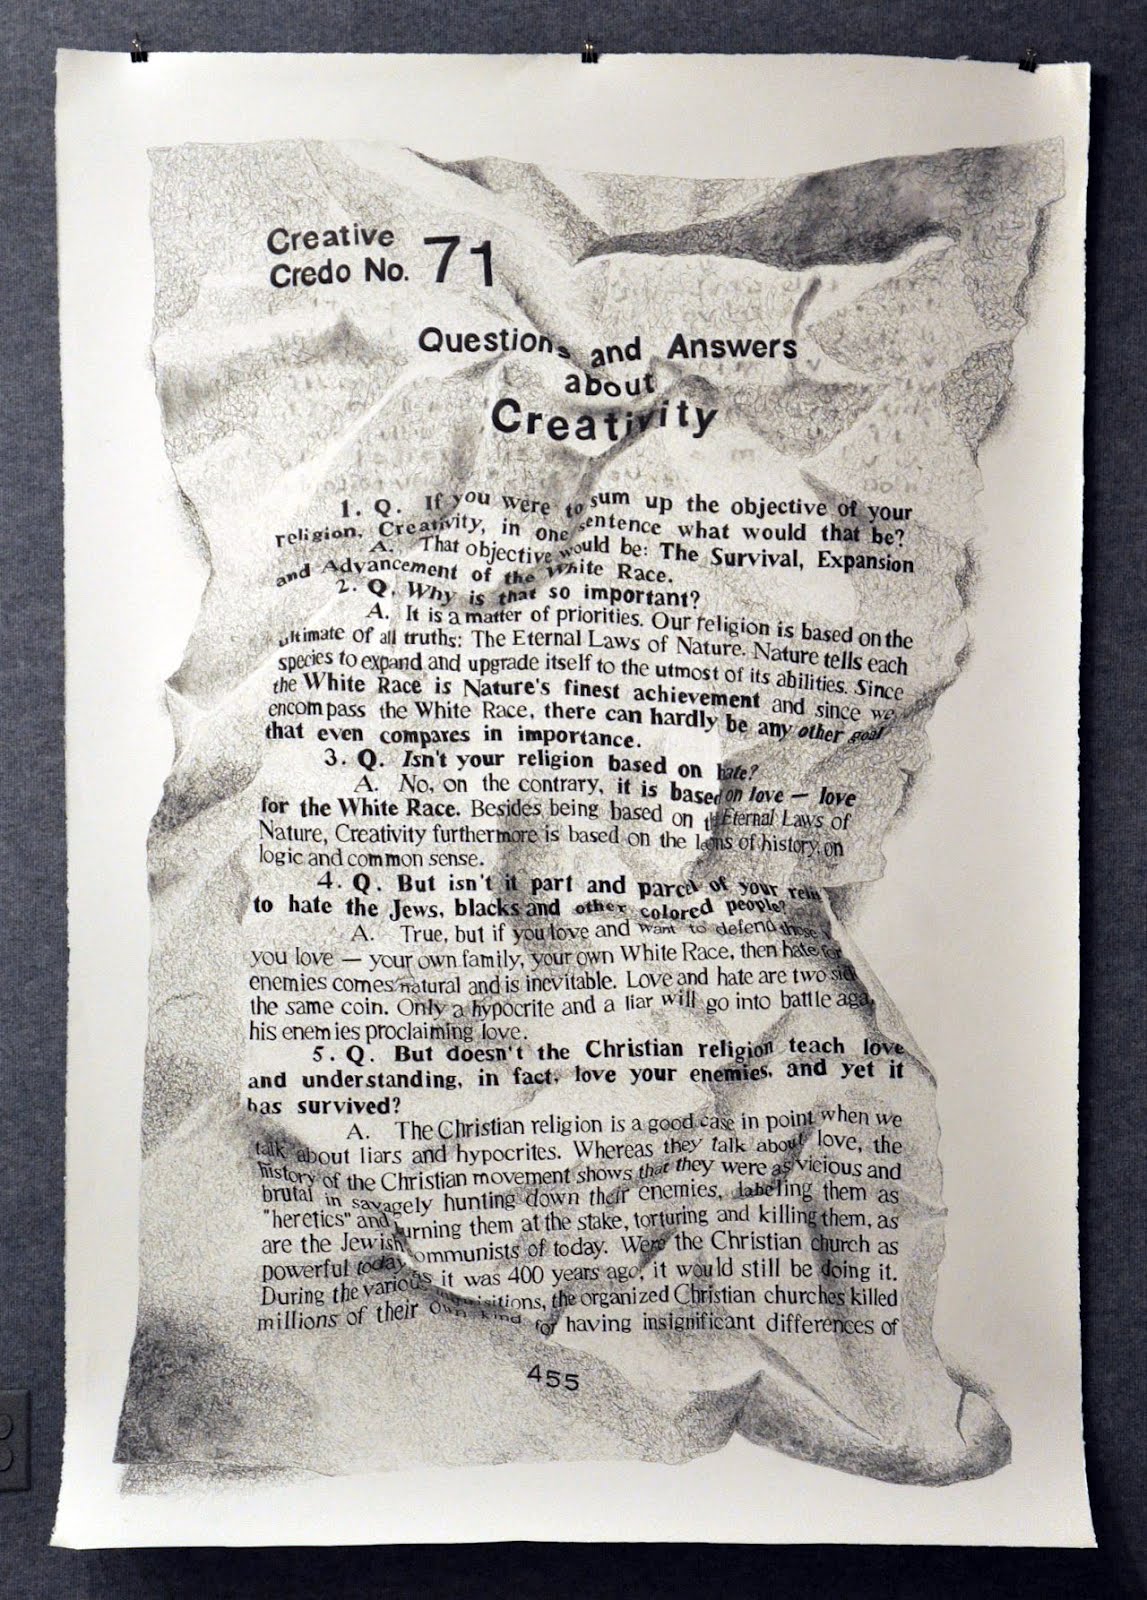 Creative
Credo No. 71
Questions and Answers
about
Creativity
1. Q. If you were to sum up the objective of your
religion, Creativity, in one sentence what would that be?
A. That objective would be: The Survival, Expansion
and Advancement of the White Race.
2. Q. Why is that so important?
A. It is a matter of priorities. Our religion is based on the
ultimate of all truths: The Eternal Laws of Nature. Nature tells each
species to expand and upgrade itself to the utmost of its abilities. Since
the White Race is Nature's finest achievement and since we
encompass the White Race, there can hardly be any other goal
that even compares in importance.
3. Q. Isn't your religion based on hate?
A. No, on the contrary, it is based on love — love
for the White Race. Besides being based on the Eternal Laws of
Nature, Creativity furthermore is based on the of history, on
logic and common sense.
4. Q. But isn't it part and parcel of your
to hate the Jews, blacks and other colored people?
A. True, but if you love and want to defend those
you love — your own family, your own White Race, then hate for
enemies comes natural and is inevitable. Love and hate are two
the same coin. Only a hypocrite and a liar will go into battle
his enemies proclaiming love.
5. Q. But doesn't the Christian religion teach love
and understanding, in fact, love your enemies, and yet it
has survived?
A. The Christian religion is a good case in point when we
talk about liars and hypocrites. Whereas they talk about love, the
history of the Christian movement shows that they were as vicious and
brutal in savagely hunting down their enemies, labeling them as
"heretics" and burning them at the stake, torturing and killing them, as
are the Jewish communists of today. Were the Christian church as
powerful today as it was 400 years ago, it would still be doing it.
During the various the organized Christian churches killed
millions of their own kind for having insignificant differences of
455